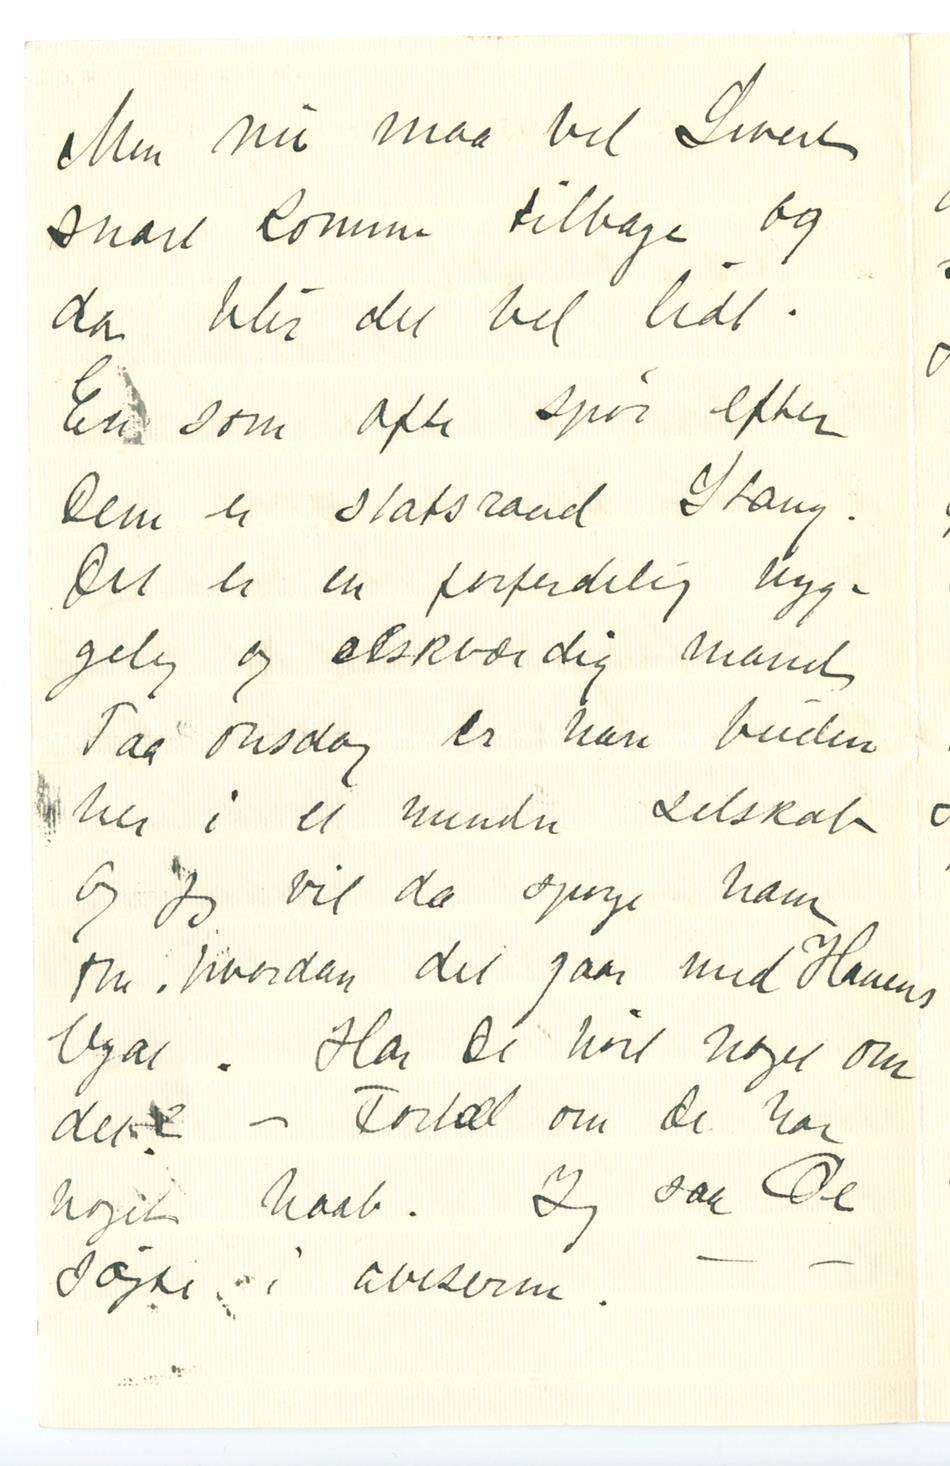 Men nu maa vel Sivert
snart komme tilbage og
da blir det vel lidt.
En som ofte spør efter
Dem er statsraad Stang.
Det er en forferdelig hyg-
gelig og elskværdig mand
Paa onsdag er han buden
her i et mindre selskab
og Jeg vil da spørge ham
om hvordan det gaar med
. Har De hørt noget om
det? – Fortæl om De har
noget haab. Jeg saa De
søgte i aviserne. — —